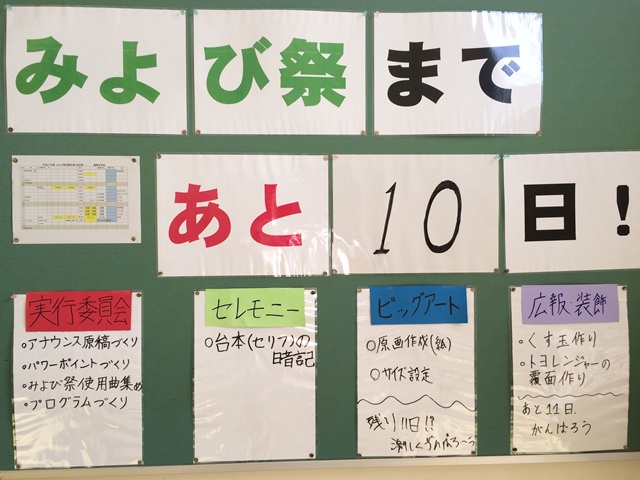 みよび祭まで
あと10日!
実行委員会
○アナウンス原稿づくり
○パワーポイントづくり
○みよび祭使用曲集め
○プログラムづくり
セレモニー
○台本(セリフ)の
暗記
ビッグアート
○原画作成(紙)
○サイズ設定
残り11日!!
楽しくがんばろ〜う
広報・装飾
○くす玉作り
○トヨレンジャーの
覆面作り
あと11日.
がんばろう